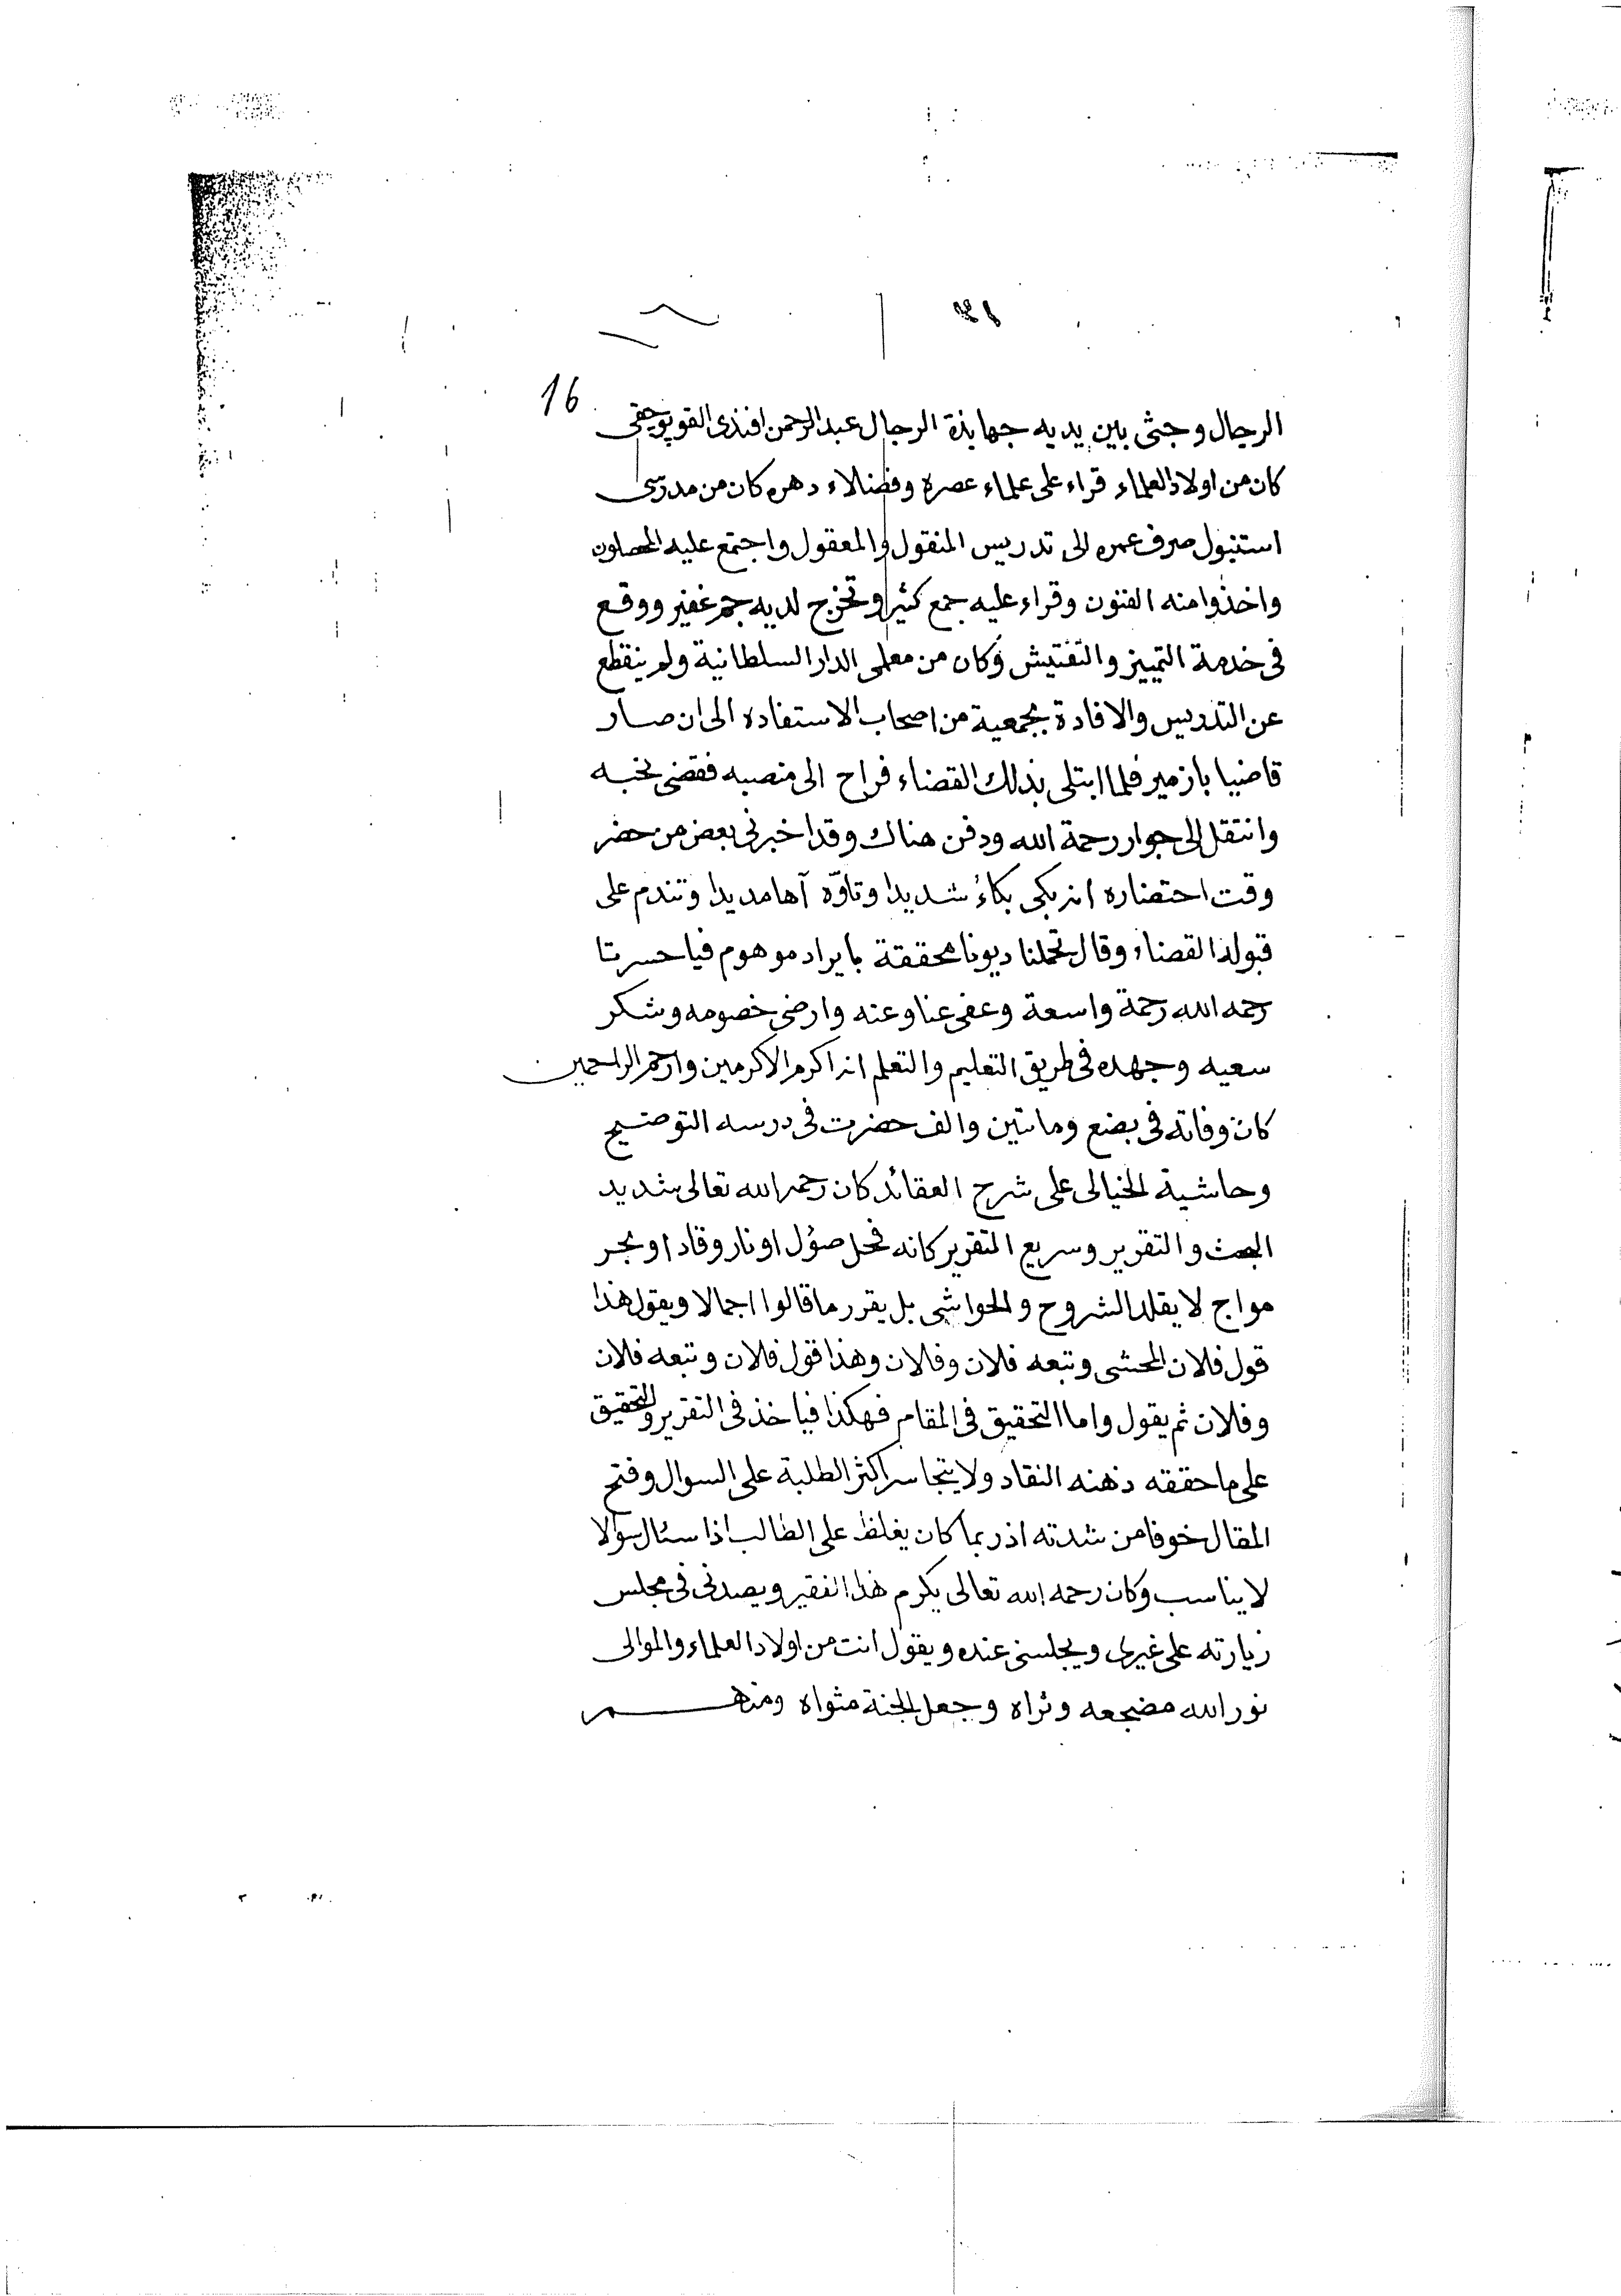 16
الرجال وجثى بين يديه جهابذة الرجال عبد الرحمن افندى القويوجقى
كان من اولاد العلماء قراء على علماء عصره وفضلاء دهره كان من مدرسى
استنبول صرف عمره الى تدريس المنقول والمعقول واجتمع عليه المحصلون
واخذوا منه الفنون وقراء عليه جمع كثير وتخرج لديه جم غفير ووقع
فى خدمة التمييز والتفتيش وكان من معلمى الدار السلطانية ولم ينقطع
عن التدريس والافادة بجمعية من اصحاب الاستفاده الى ان صار
قاضيا بازمير فلما ابتلى بذلك القضاء فراح الى منصبه فقضى نحبه
وانتقل الى جوار رحمة الله ودفن هناك وقد اخبرنى بعض من حضر
وقت احتضاره انه بكى بكاءً شديدا وتاوّه آها مديدا وتندم على
قبوله القضاء وقال تحملنا ديونا محققة بايراد موهوم فيا حسرتا
رحمه الله رحمة واسعة وعفى عنا وعنه وارضى خصومه وشكر
سعيه وجهده فى طريق التعليم والتعلم انه اكرم الاكرمين وارحم الراحمين
كان وفاته فى بضع وماتين والف حضرت فى درسه التوضيح
وحاشية الخيالى على شرح العقائد كان رحمه الله تعالى شديد
البحث والتقرير وسريع التقرير كانه فحل صؤل او نار وقاد او بحر
مواج لا يقلد الشروح والحواشى بل يقرر ما قالوا اجمالا ويقول هذا
قول فلان المحشى وتبعه فلان وفلان وهذا قول فلان وتبعه فلان
وفلان ثم يقول واما التحقيق فى المقام فهكذا فياخذ فى التقرير والتحقيق
على ما حققه ذهنه النقاد ولا يتجاسر اكثر الطلبة على السوال وفتح
المقال خوفا من شدته اذ ربما كان يغلظ على الطالب اذا سئال سوالا
لا يناسب وكان رحمه الله تعالى يكرم هذا الفقير ويصدنى فى مجلس
زيارته على غيرى ويجلسنى عنده ويقول انت من اولاد العلماء والموالى
نور الله مضجعه وثراه وجعل الجنة مثواه ومنهم